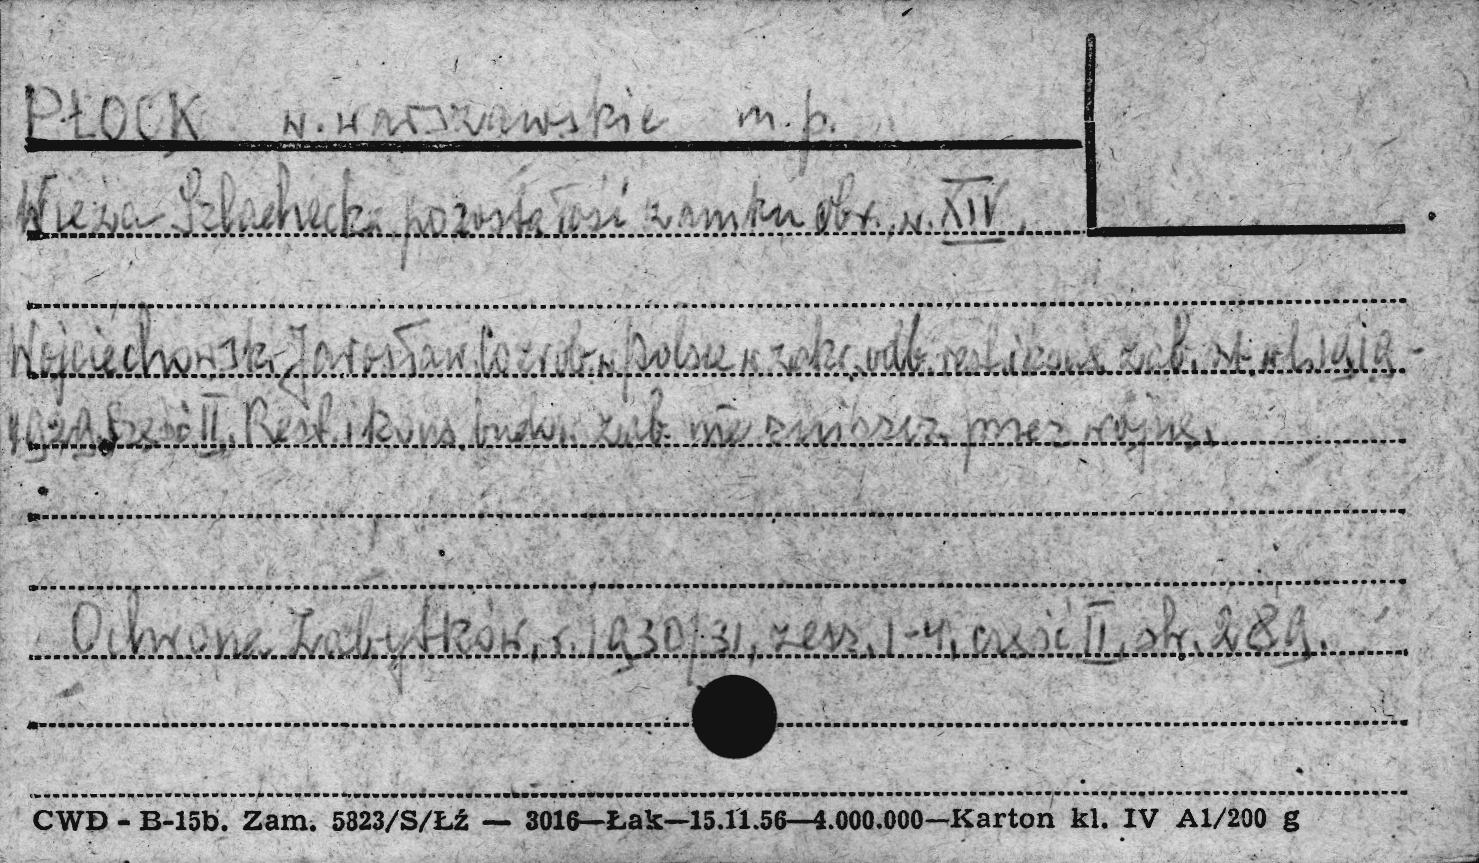 PŁOCK w. warszawskie m. p.
Wieża Szlachecka pozostałość zamku obr. w. XIV.
Wojciechowski Jarosław Co zrob. w Polsce w zakr. odb. rest. i kons. zab. szt. w l. 1919-
1929. Część II. Rest. i kons. budow. zab. nie zniszcz. przez wojnę.
Ochrona Zabytków, r. 1930/31, zesz. 1-4, część II, str. 289.
CWD - B-15b. Zam. 5823/S/Łź — 3016—Łak—15.11.56—4.000.000—Karton kl. IV A1/200 g